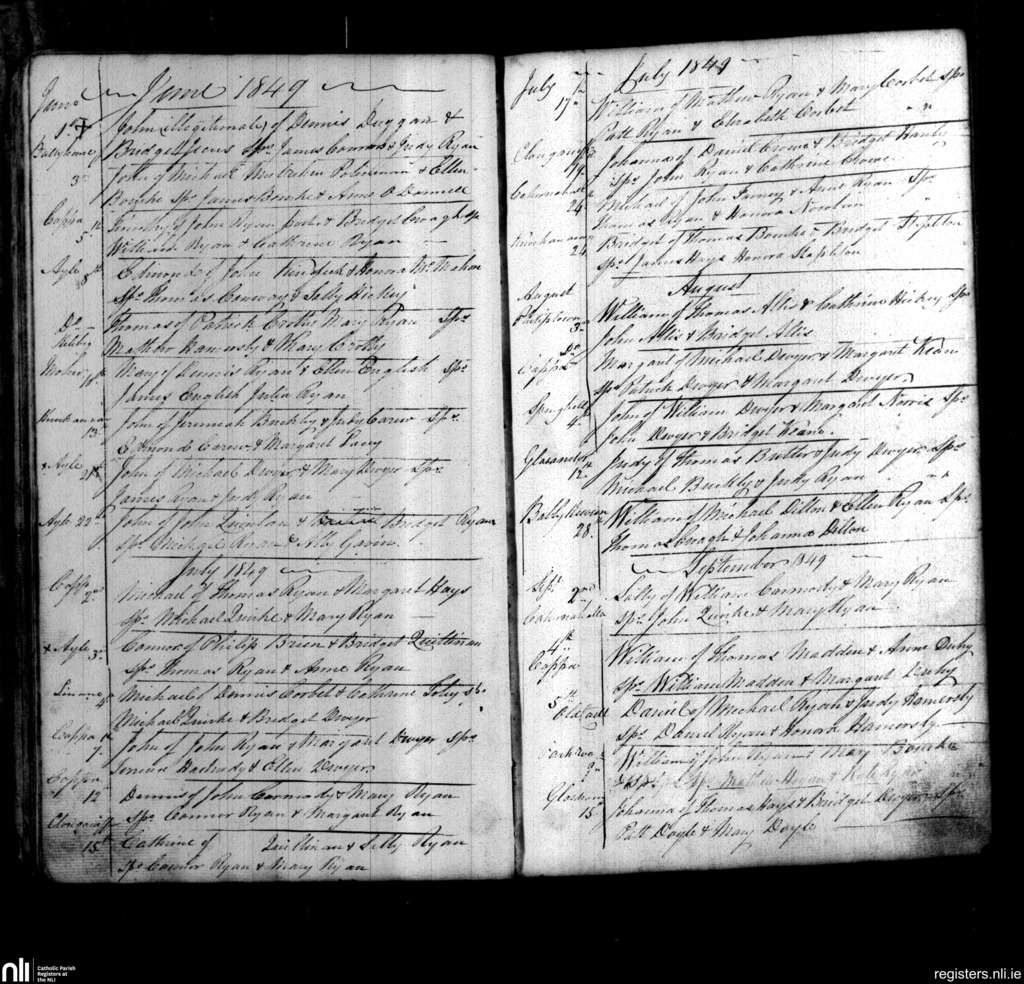 June 1849
June
1st John (illegitimate) of Dennis Duggan &
Ballyhane Bridget Spr James Connors & Judy Ryan
3rd John of Michael Policeman & Ellen
Bourke Spr James Bourke & Anne O Donnell
Cappa 5th Timothy of John Ryan & Bridget
William Ryan & Catherine Ryan
Ayle 8th Edmond of John & Honora McMahon
Sps Thomas Conway & Sally Hickey
Do Thomas of Patrick Crotty Mary Ryan Sprs
Mathew Hamersly & Mary Crotty
10th Mary of Dennis Ryan & Ellen English Sprs
James English Julia Ryan
13 John of Jeremiah Buckley & Judy Carew Spr
Edmond Carew & Margaret
Ayle 21st John of Michael Dwyer & Mary Dwyer Sprs
James Ryan & Judy Ryan
Ayle 22nd John of John Quinlan & Bridget Ryan
Spr Michael Ryan & Ally Gavin
July 1849
Cappa 2nd Michael of Thomas Ryan & Margaret Hays
Sprs Michael Quirke & Mary Ryan
Ayle 3rd Connor of Philip Brien & Bridget Quillinan
Sprs Thomas Ryan & Anne Ryan
4th Michael of Dennis Corbet & Catherine Foley Sps
Michael Quirke & Bridget Dwyer
Cappa 7th John of John Ryan & Margaret Dwyer Sprs
& Ellen Dwyer
Cappa 12 Dennis of John Carmody & Mary Ryan
Sprs Connor Ryan & Margaret Ryan
15th Catherine of Quillinan & Sally Ryan
Sprs Connor Ryan & Mary Ryan
July July 1849
17th William of Mathew Ryan & Mary Corbet Sprs
Patt Ryan & Elizabeth Corbet
19th Johanna of Daniel Crowe & Bridget Hanly
Sprs John Ryan & Catherine Crowe
24 Michael of John Fahey & Anne Ryan Sprs
Thomas Ryan & Honora
24 Bridget of Thomas Bourke & Bridget Stapleton
Sprs James Hays Honora Stapleton
August August
Philipstown 3rd William of Thomas Allis & Catherine Hickey Sprs
John Allis & Bridget Allis
Do
Cappa Margaret of Michael Dwyer & Margaret Kean
Sps Patrick Dwyer & Margaret Dwyer
Springhill 4th John of William Dwyer & Margaret Norris Sps
John Dwyer & Bridget Keane
12th Judy of Thomas Butler & Judy Dwyer Sprs
Michael Buckley & Judy Ryan
28 William of Michael Dillon & Ellen Ryan Sprs
Thomas & Johanna Dillon
September 1849
Sepr 2nd Sally of William Carmody & Mary Ryan
Sprs John Quirke & Mary Ryan
4th
Cappa William of Thomas Madden & Anne
Sprs William Madden & Margaret
5th
Daniel of Michael Ryan & Judy Hamersly
Sprs Daniel Ryan & Honora Hamersly
9th William of John Ryan & Mary Bourke
15 Johanna of Thomas Hays & Bridget Dwyer Sps
Patt Doyle & Mary Doyle
nli
Catholic Parish
Registers at
the NLI
registers.nli.ie